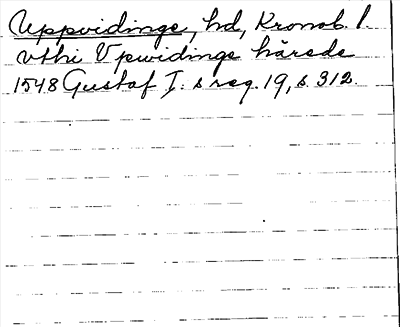 Uppvidinge, hd, Kronob. l.
vthi Vpwidinge härede
1548 Gustaf I: s reg. 19, s. 312.